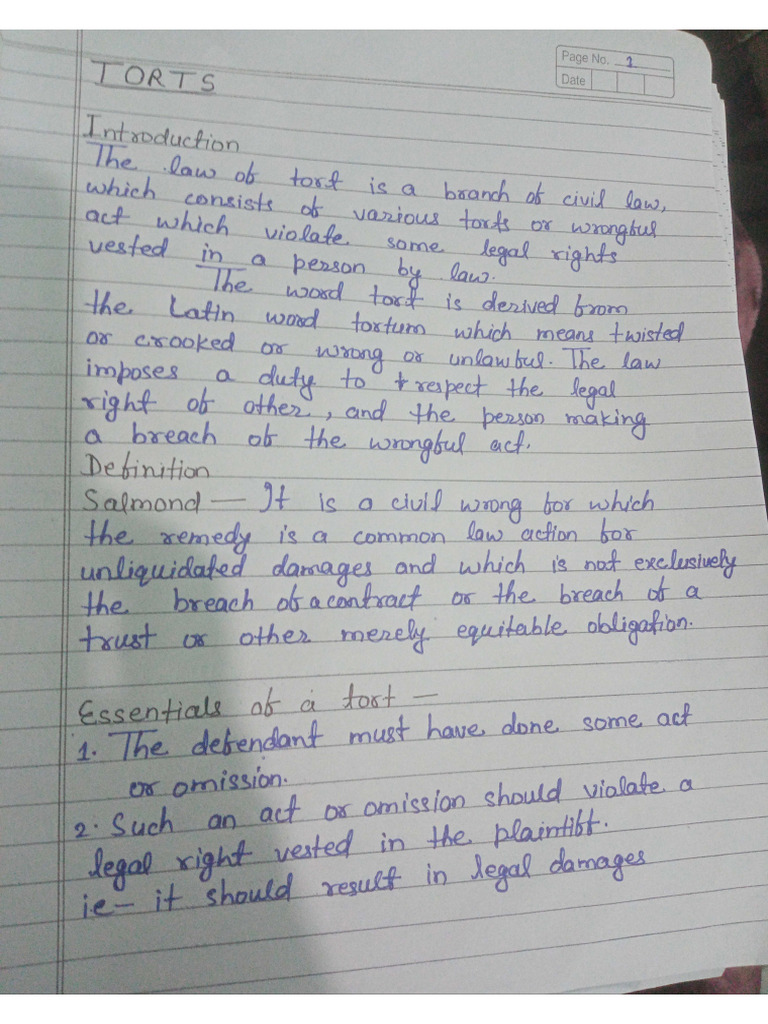 Page No. 1
Date
TORTS
Introduction
The law of tort is a branch of civil law,
which consists of various torts or wrongful
act which violate some legal rights
vested in a person by law.
The word tort is derived from
the Latin word tortum which means twisted
or crooked or wrong or unlawful. The law
imposes a duty to respect the legal
right of other, and the person making
a breach of the wrongful act.
Definition
Salmond — It is a civil wrong for which
the remedy is a common law action for
unliquidated damages and which is not exclusively
the breach of a contract or the breach of a
trust or other merely equitable obligation.
Essentials of a tort —
1. The defendant must have done some act
or omission.
2. Such an act or omission should violate a
legal right vested in the plaintiff.
i.e – it should result in legal damages